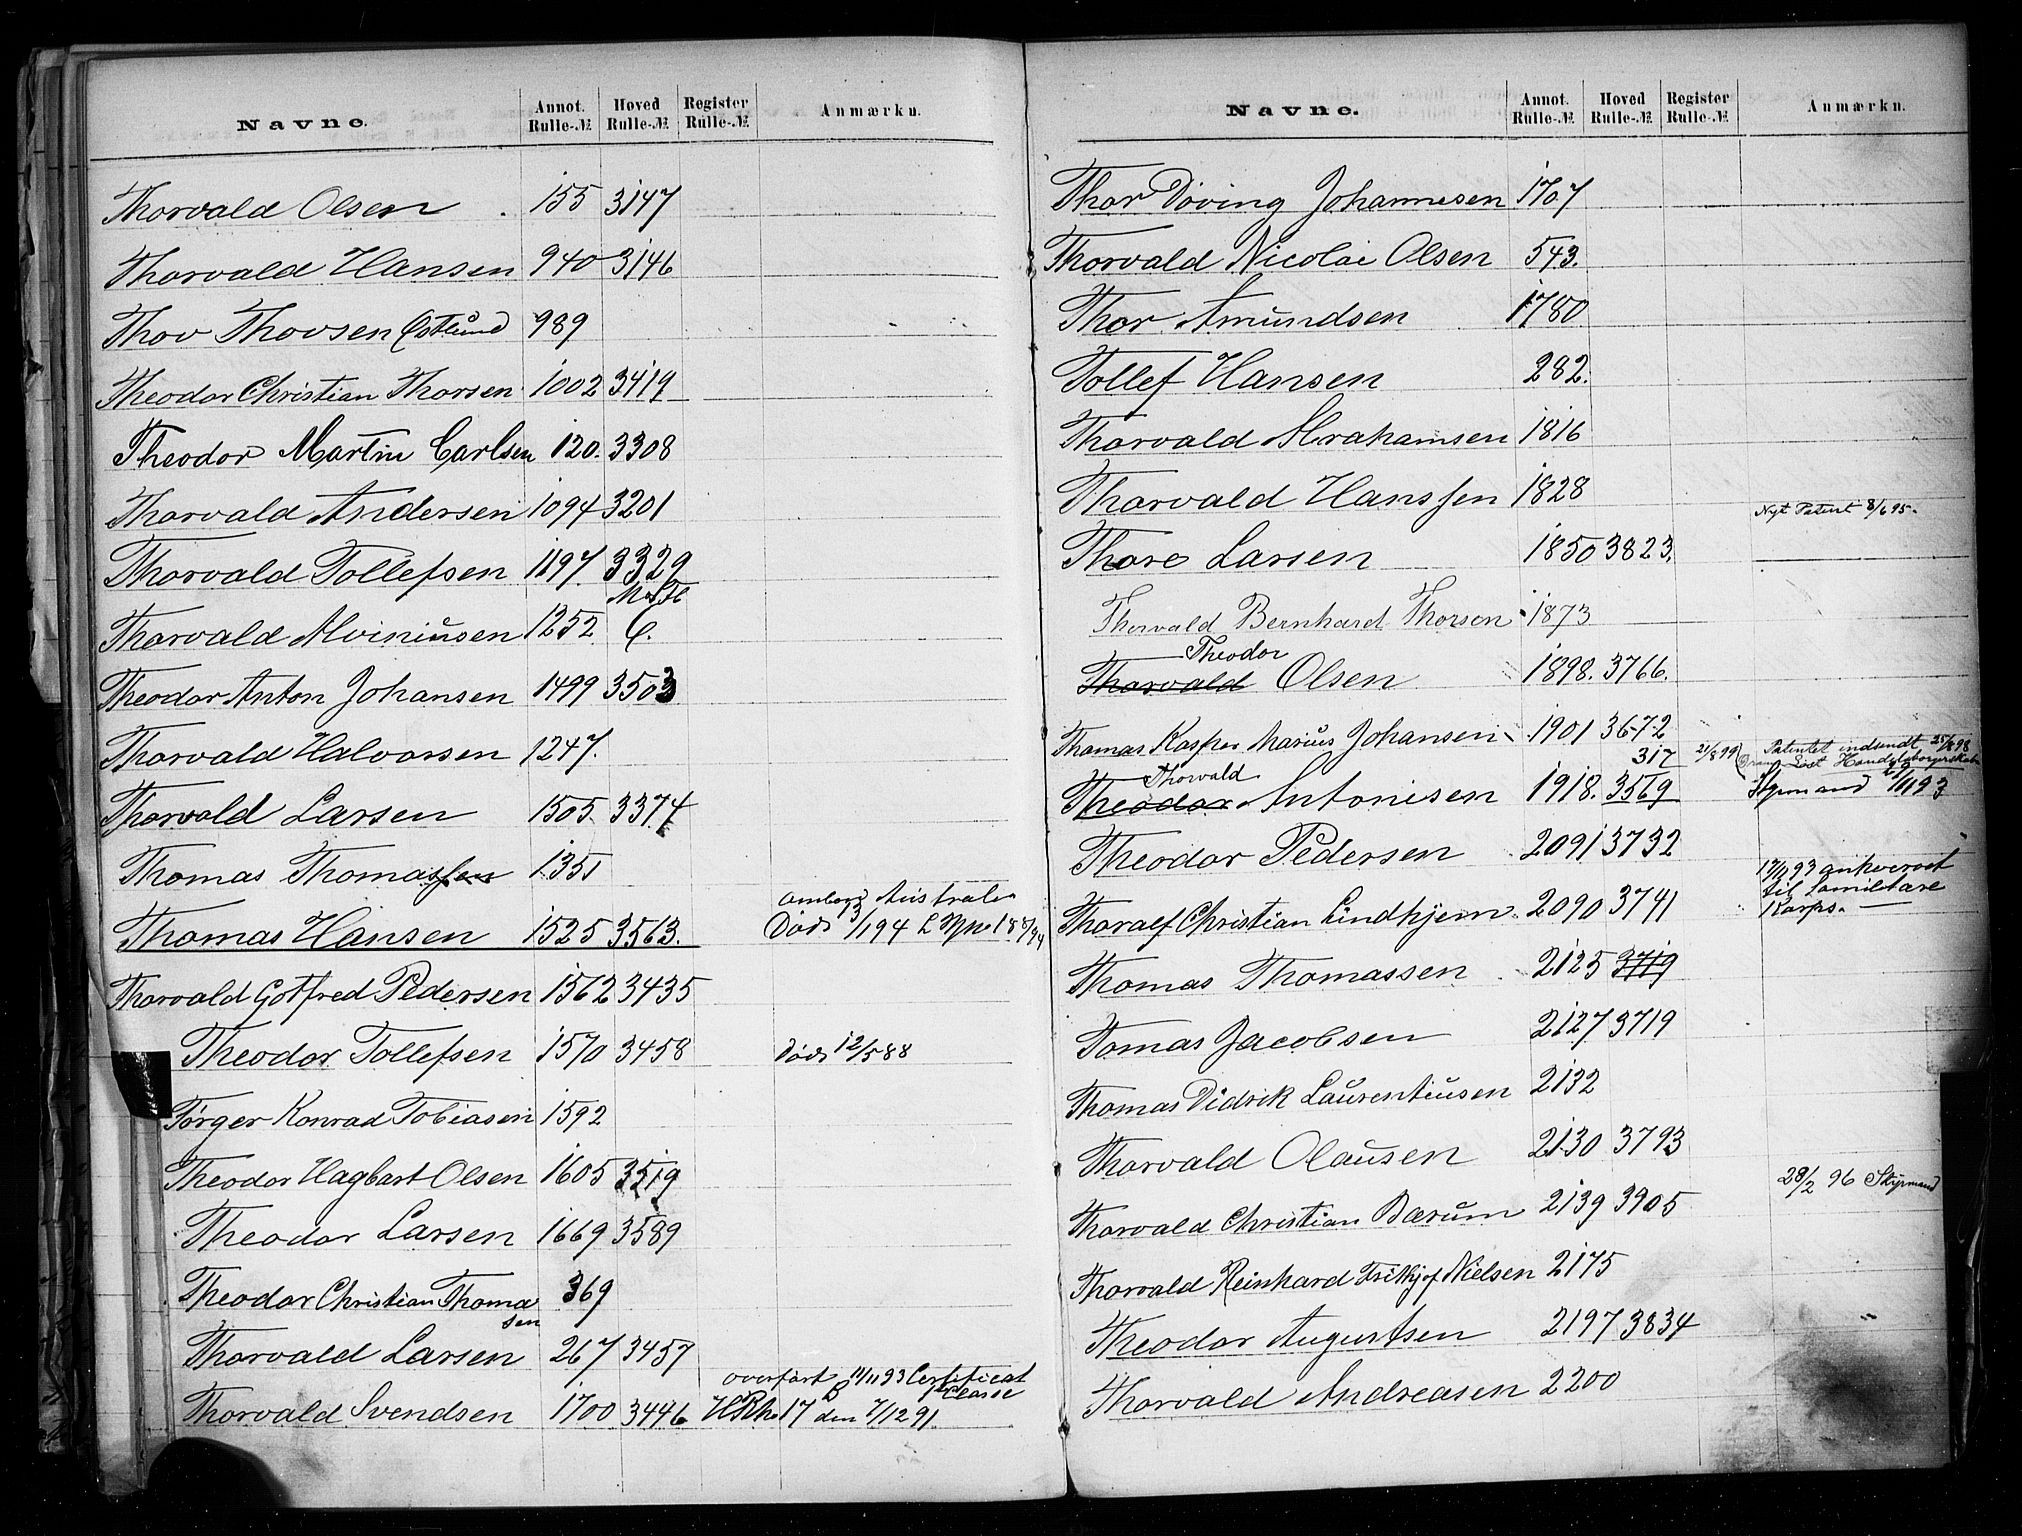 Navne. Annot. Rulle-№ Hoved Rulle-№ Register Rulle-№ Anmærkn.
Thorvald Olsen 155 3147
Thorvald Hansen 940 3146
Thov Thovsen Østlund 989
Theodor Christian Thorsen 1002 3419
Theodor Martin Carlsen 120. 3308
Thorvald Andersen 1094 3201
Thorvald Tollefsen 1197. 3329
Thorvald Alviniusen 1252 C.
Theodor Anton Johansen 1499 3503
Thorvald Halvorsen 1247.
Thorvald Larsen 1505. 3374
Thomas Thomassen 1351
Thomas Hansen 1525 3563.
Thorvald Gotfred Pedersen 1562 3435
Theodor Tollefsen 1570 3458 Død 12/5 88
Tørger Konrad Tobiasen 1592
Theodor Hagbart Olsen 1605 3519
Theodor Larsen 1669 3589
Theodor Christian Thoma 369
sen
Thorvald Larsen 267 3457
overført 11/11 93 Certificat
Thorvald Svendsen 1700 3446 17 den 7/12 91.
Navne. Annot. Rulle-№ Hoved Rulle-№ Register Rulle-№ Anmærkn.
Thor Döving Johannesen 1707
Thorvald Nicolai Olsen 543.
Thor Amundsen 1780
Tollef Hansen 282.
Thorvald Abrahamsen 1816
Thorvald Hanssen 1828
Nyt Patent 8/6 95.
Thore Larsen 1850 3823.
Thorvald Bernhard Thorsen 1873
Theodor
Thorvald Olsen 1898. 3766.
Thomas Kasper Marius Johansen 1901 3672
317 21/8 99 Patentet indsendt 25/8 98
Thorvald
Theodor Antonisen 1918. 3569 Styrmand
Theodor Pedersen 2091 3732
Thoralf Christian Lindhjem 2090 3741
Thomas Thomassen 2125 3719
Tomas Jacobsen 2127 3719
Thomas Didrik Laurentiusen 2132
Thorvald Olausen 2130 3793
28/2 96 Styrmand
Thorvald Christian Bærum 2139 3905
Thorvald Reinhard Frithjof Nielsen 2175
Theodor Augustsen 2197 3834
Thorvald Andreasen 2200